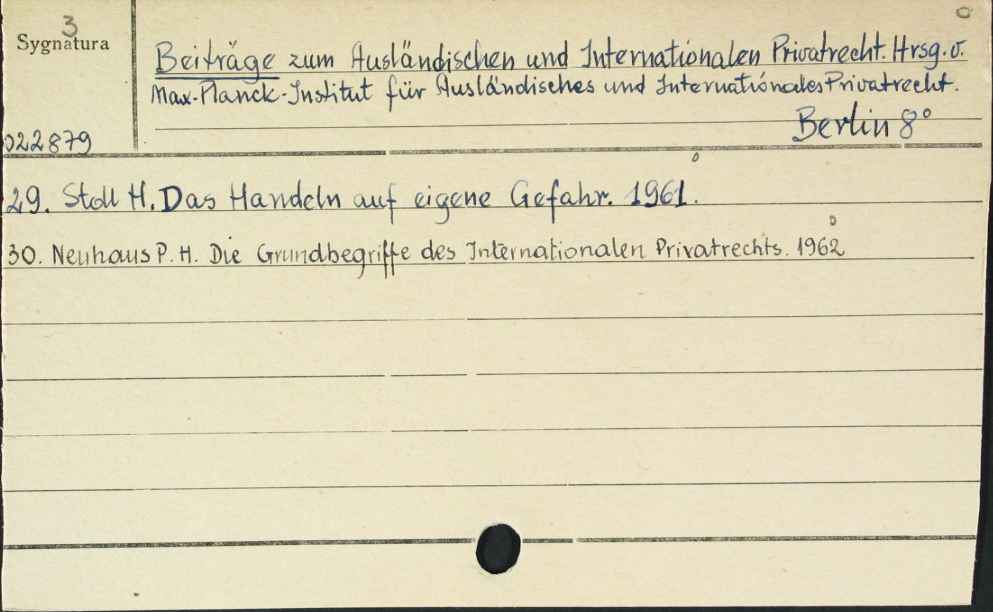 3
Sygnatura
Beiträge zum Ausländischen und Internationalen Privatrecht. Hrsg. v.
Max-Planck-Institut für Ausländisches und Internationales Privatrecht.
Berlin 8°
022879
29. Stoll H. Das Handeln auf eigene Gefahr. 1961.
30. Neuhaus P. H. Die Grundbegriffe des Internationalen Privatrechts. 1962